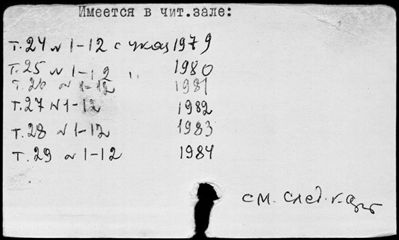 Имеется в чит.зале:
т.24 N 1-12 с указ 1979
т.25 N 1-12 " 1980
т.26 N 1-12 1981
т.27 N 1-12 1982
т.28 N 1-12 1983
т.29 N 1-12 1984
см. след.